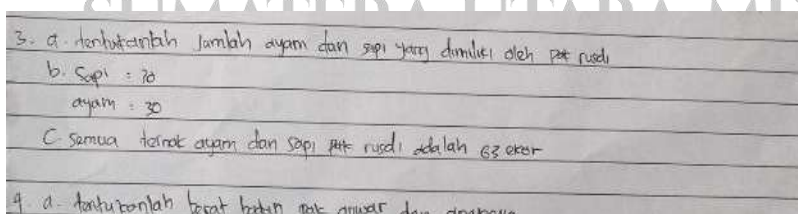 3. a. tentukanlah Jumlah ayam dan sapi yang dimiliki oleh pak rusdi
b. Sapi : 70
ayam : 30
C. Semua ternak ayam dan sapi pak rusdi adalah 63 ekor
4. a. tentukanlah berat badan pak anwar dan